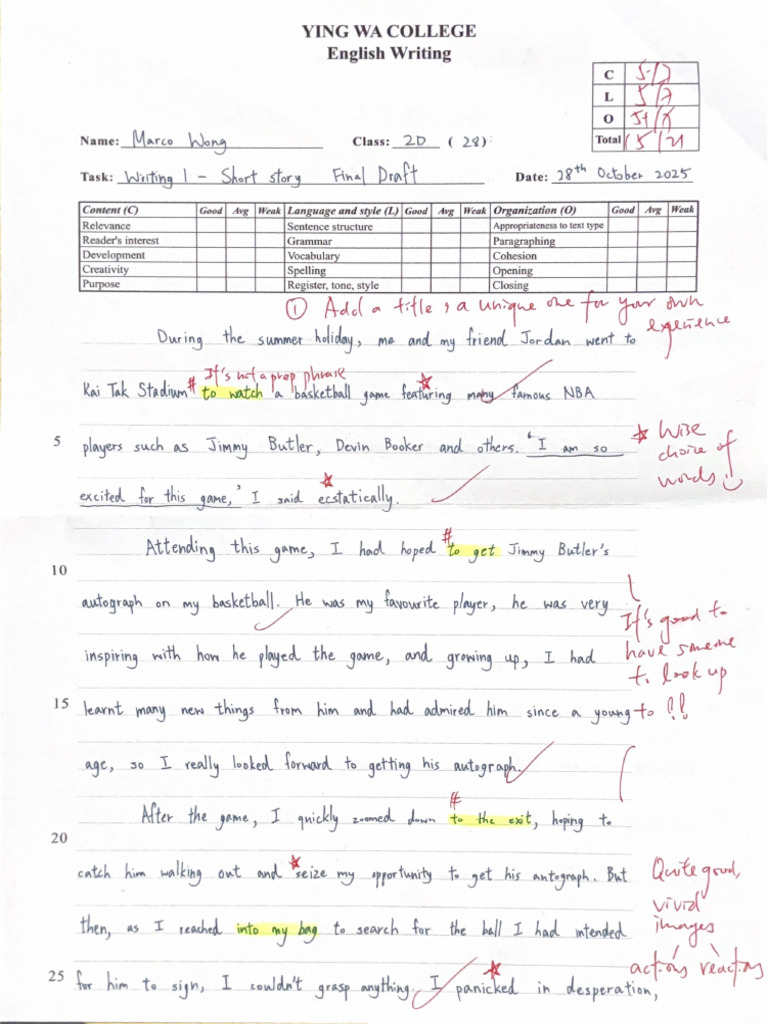 YING WA COLLEGE
English Writing
C 5/7
L 5/7
O 5+/7
Total 15/21
Name: Marco Wong Class: 2D ( 28 )
Task: Writing 1 - Short story Final Draft Date: 28th October 2025
Content (C) Good Avg Weak Language and style (L) Good Avg Weak Organization (O) Good Avg Weak
Relevance Sentence structure Appropriateness to text type
Reader's interest Grammar Paragraphing
Development Vocabulary Cohesion
Creativity Spelling Opening
Purpose Register, tone, style Closing
① Add a title, a unique one for your own experience
During the summer holiday, me and my friend Jordan went to
It's not a prep phrase
Kai Tak Stadium # to watch a basketball game featuring many famous NBA
5 players such as Jimmy Butler, Devin Booker and others. 'I am so
excited for this game,' I said ecstatically.
* Wise
choice of
words
Attending this game, I had hoped # to get Jimmy Butler's
10
autograph on my basketball. He was my favourite player, he was very
inspiring with how he played the game, and growing up, I had
15 learnt many new things from him and had admired him since a young
age, so I really looked forward to getting his autograph.
It's good to
have someone
to look up
to !!
After the game, I quickly zoomed down # to the exit, hoping to
20
catch him walking out and seize my opportunity to get his autograph. But
then, as I reached into my bag to search for the ball I had intended
25 for him to sign, I couldn't grasp anything. I panicked in desperation,
Quite good,
vivid
images
actions reactions